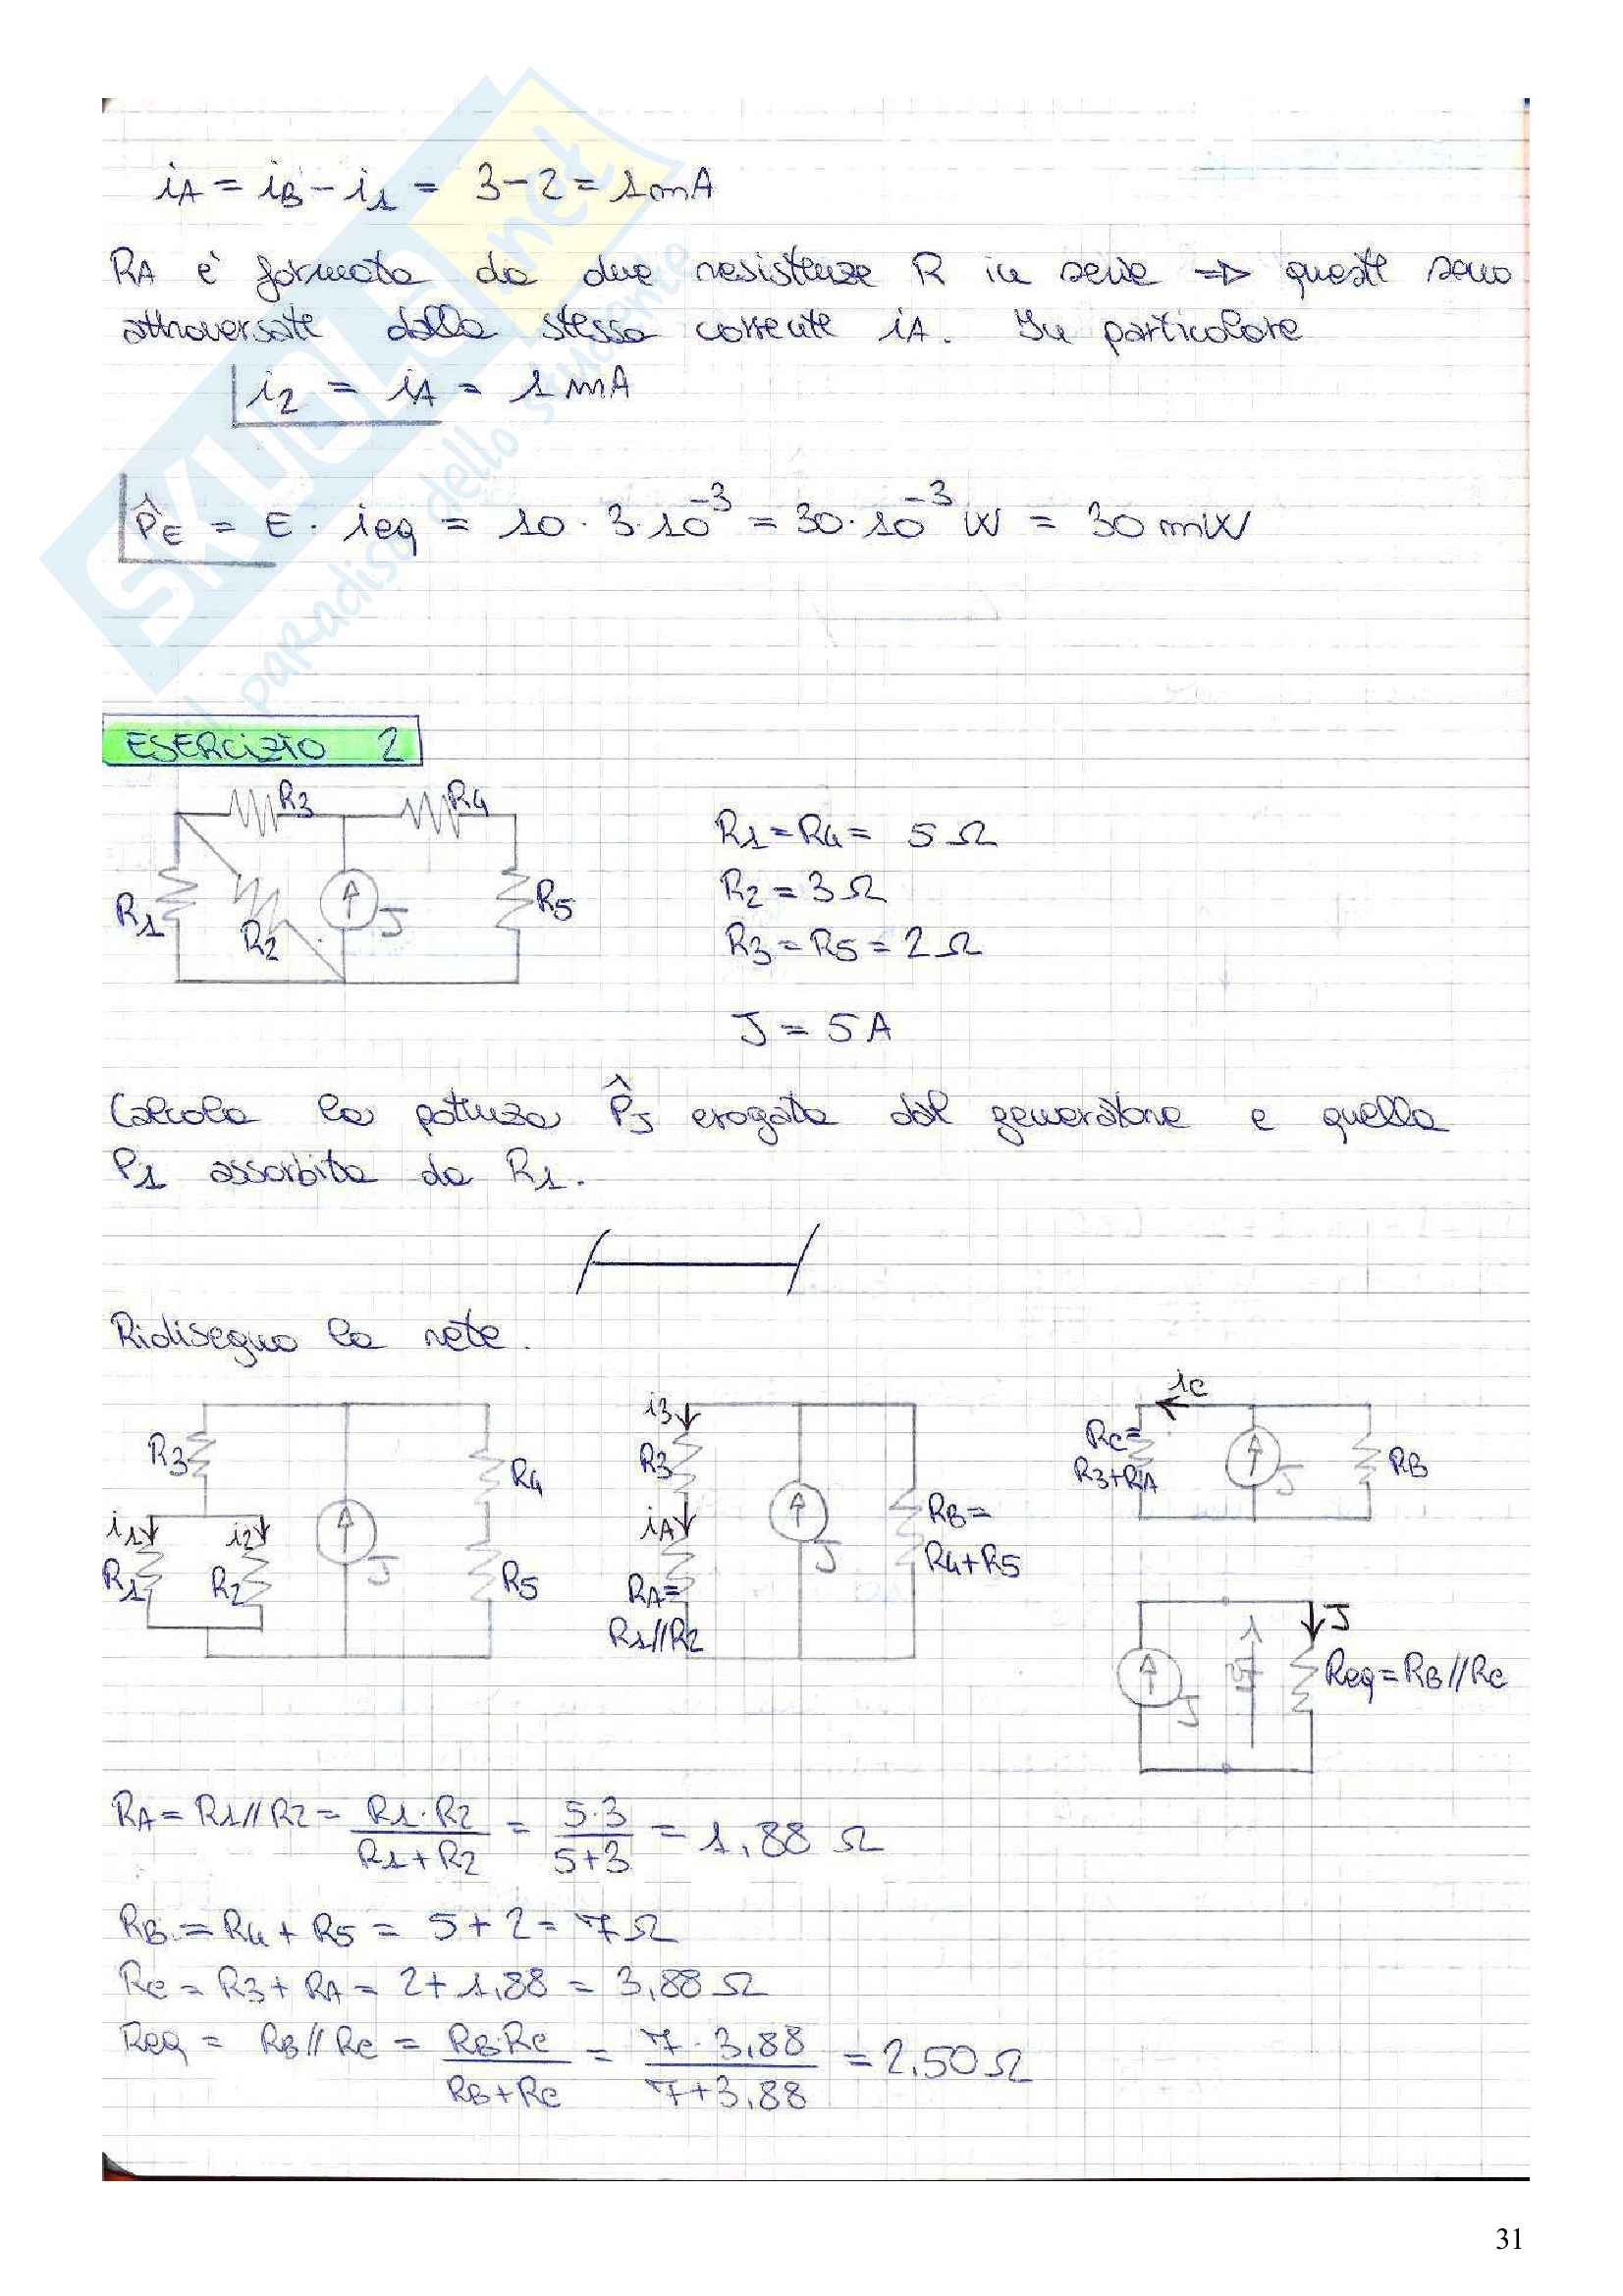 iA = iB - i1 = 3-2 = 1mA
RA è formata da due resistenze R in serie => queste sono
attraversate dalla stessa corrente iA. In particolare
i2 = iA = 1 mA
P̂E = E · ieq = 10 · 3·10⁻³ = 30·10⁻³ W = 30 mW
SKUOLA.net
il paradiso dello studente
ESERCIZIO 2
R3 R4
R1 R2 J R5
R1 = R4 = 5 Ω
R2 = 3 Ω
R3 = R5 = 2 Ω
J = 5 A
Calcola la potenza P̂J erogata dal generatore e quella
P1 assorbita da R1.
Ridisegno la rete.
R3
i1 i2
R1 R2
J
R4
R5
i3
R3
iA
RA =
R1//R2
J
RB =
R4+R5
iC
RC =
R3+RA
J
RB
J
J
Req = RB//RC
RA = R1//R2 = R1·R2 / R1+R2 = 5·3 / 5+3 = 1,88 Ω
RB = R4 + R5 = 5+2 = 7 Ω
RC = R3 + RA = 2 + 1,88 = 3,88 Ω
Req = RB//RC = RB·RC / RB+RC = 7 · 3,88 / 7+3,88 = 2,50 Ω
31